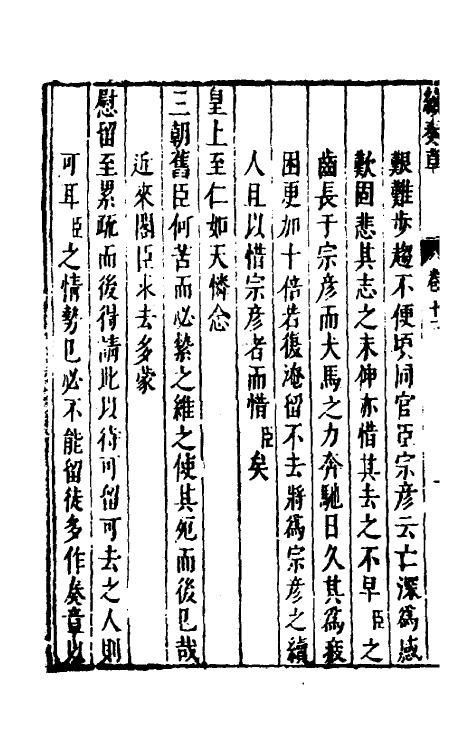 續奏草
卷十二
艱難步趨不便頃同官臣宗彥云亡深爲感
歎固悲其志之未伸亦惜其去之不早臣之
齒長于宗彥而犬馬之力奔馳日久其爲疲
困更加十倍若復淹留不去將爲宗彥之續
人且以惜宗彥者而惜臣矣
皇上至仁如天憐念
三朝舊臣何苦而必縶之維之使其死而後已哉
近來閣臣求去多蒙
慰留至累疏而後得請此以待可留可去之人則
可耳臣之情勢已必不能留徒多作奏章以